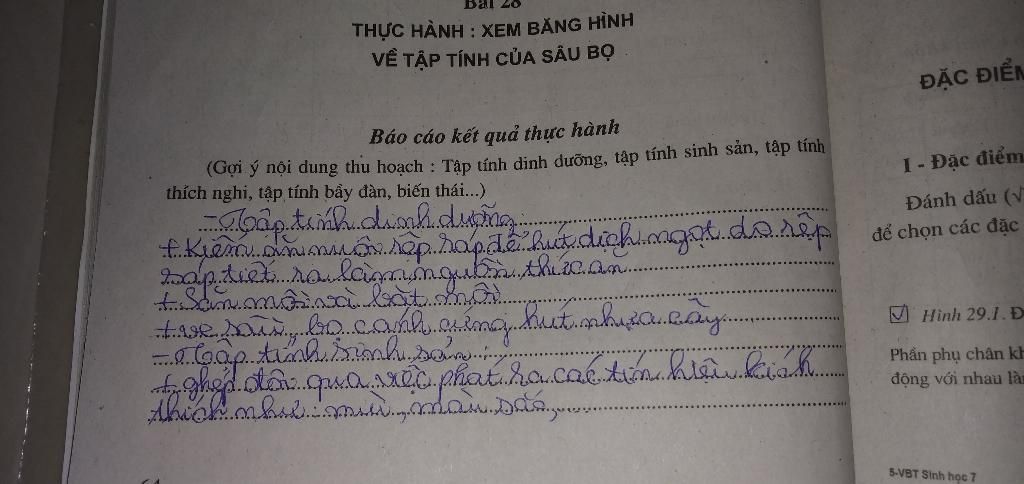 Bài 28
THỰC HÀNH : XEM BĂNG HÌNH
VỀ TẬP TÍNH CỦA SÂU BỌ
Báo cáo kết quả thực hành
(Gợi ý nội dung thu hoạch : Tập tính dinh dưỡng, tập tính sinh sản, tập tính
thích nghi, tập tính bầy đàn, biến thái...)
- Tập tính dinh dưỡng:
+ Kiếm ăn nuôi rệp sáp để hút dịch ngọt do rệp
sáp tiết ra làm nguồn thức ăn
+ Săn mồi và bắt mồi
+ ve sầu, bọ cánh cứng hút nhựa cây
- Tập tính sinh sản :
+ ghép đôi qua việc phát ra các tín hiệu kích
thích như : mùi, màu sắc,
ĐẶC ĐIỂM
I - Đặc điểm
Đánh dấu (√
để chọn các đặc
Hình 29.1. Đ
Phần phụ chân kh
động với nhau là
5-VBT Sinh học 7